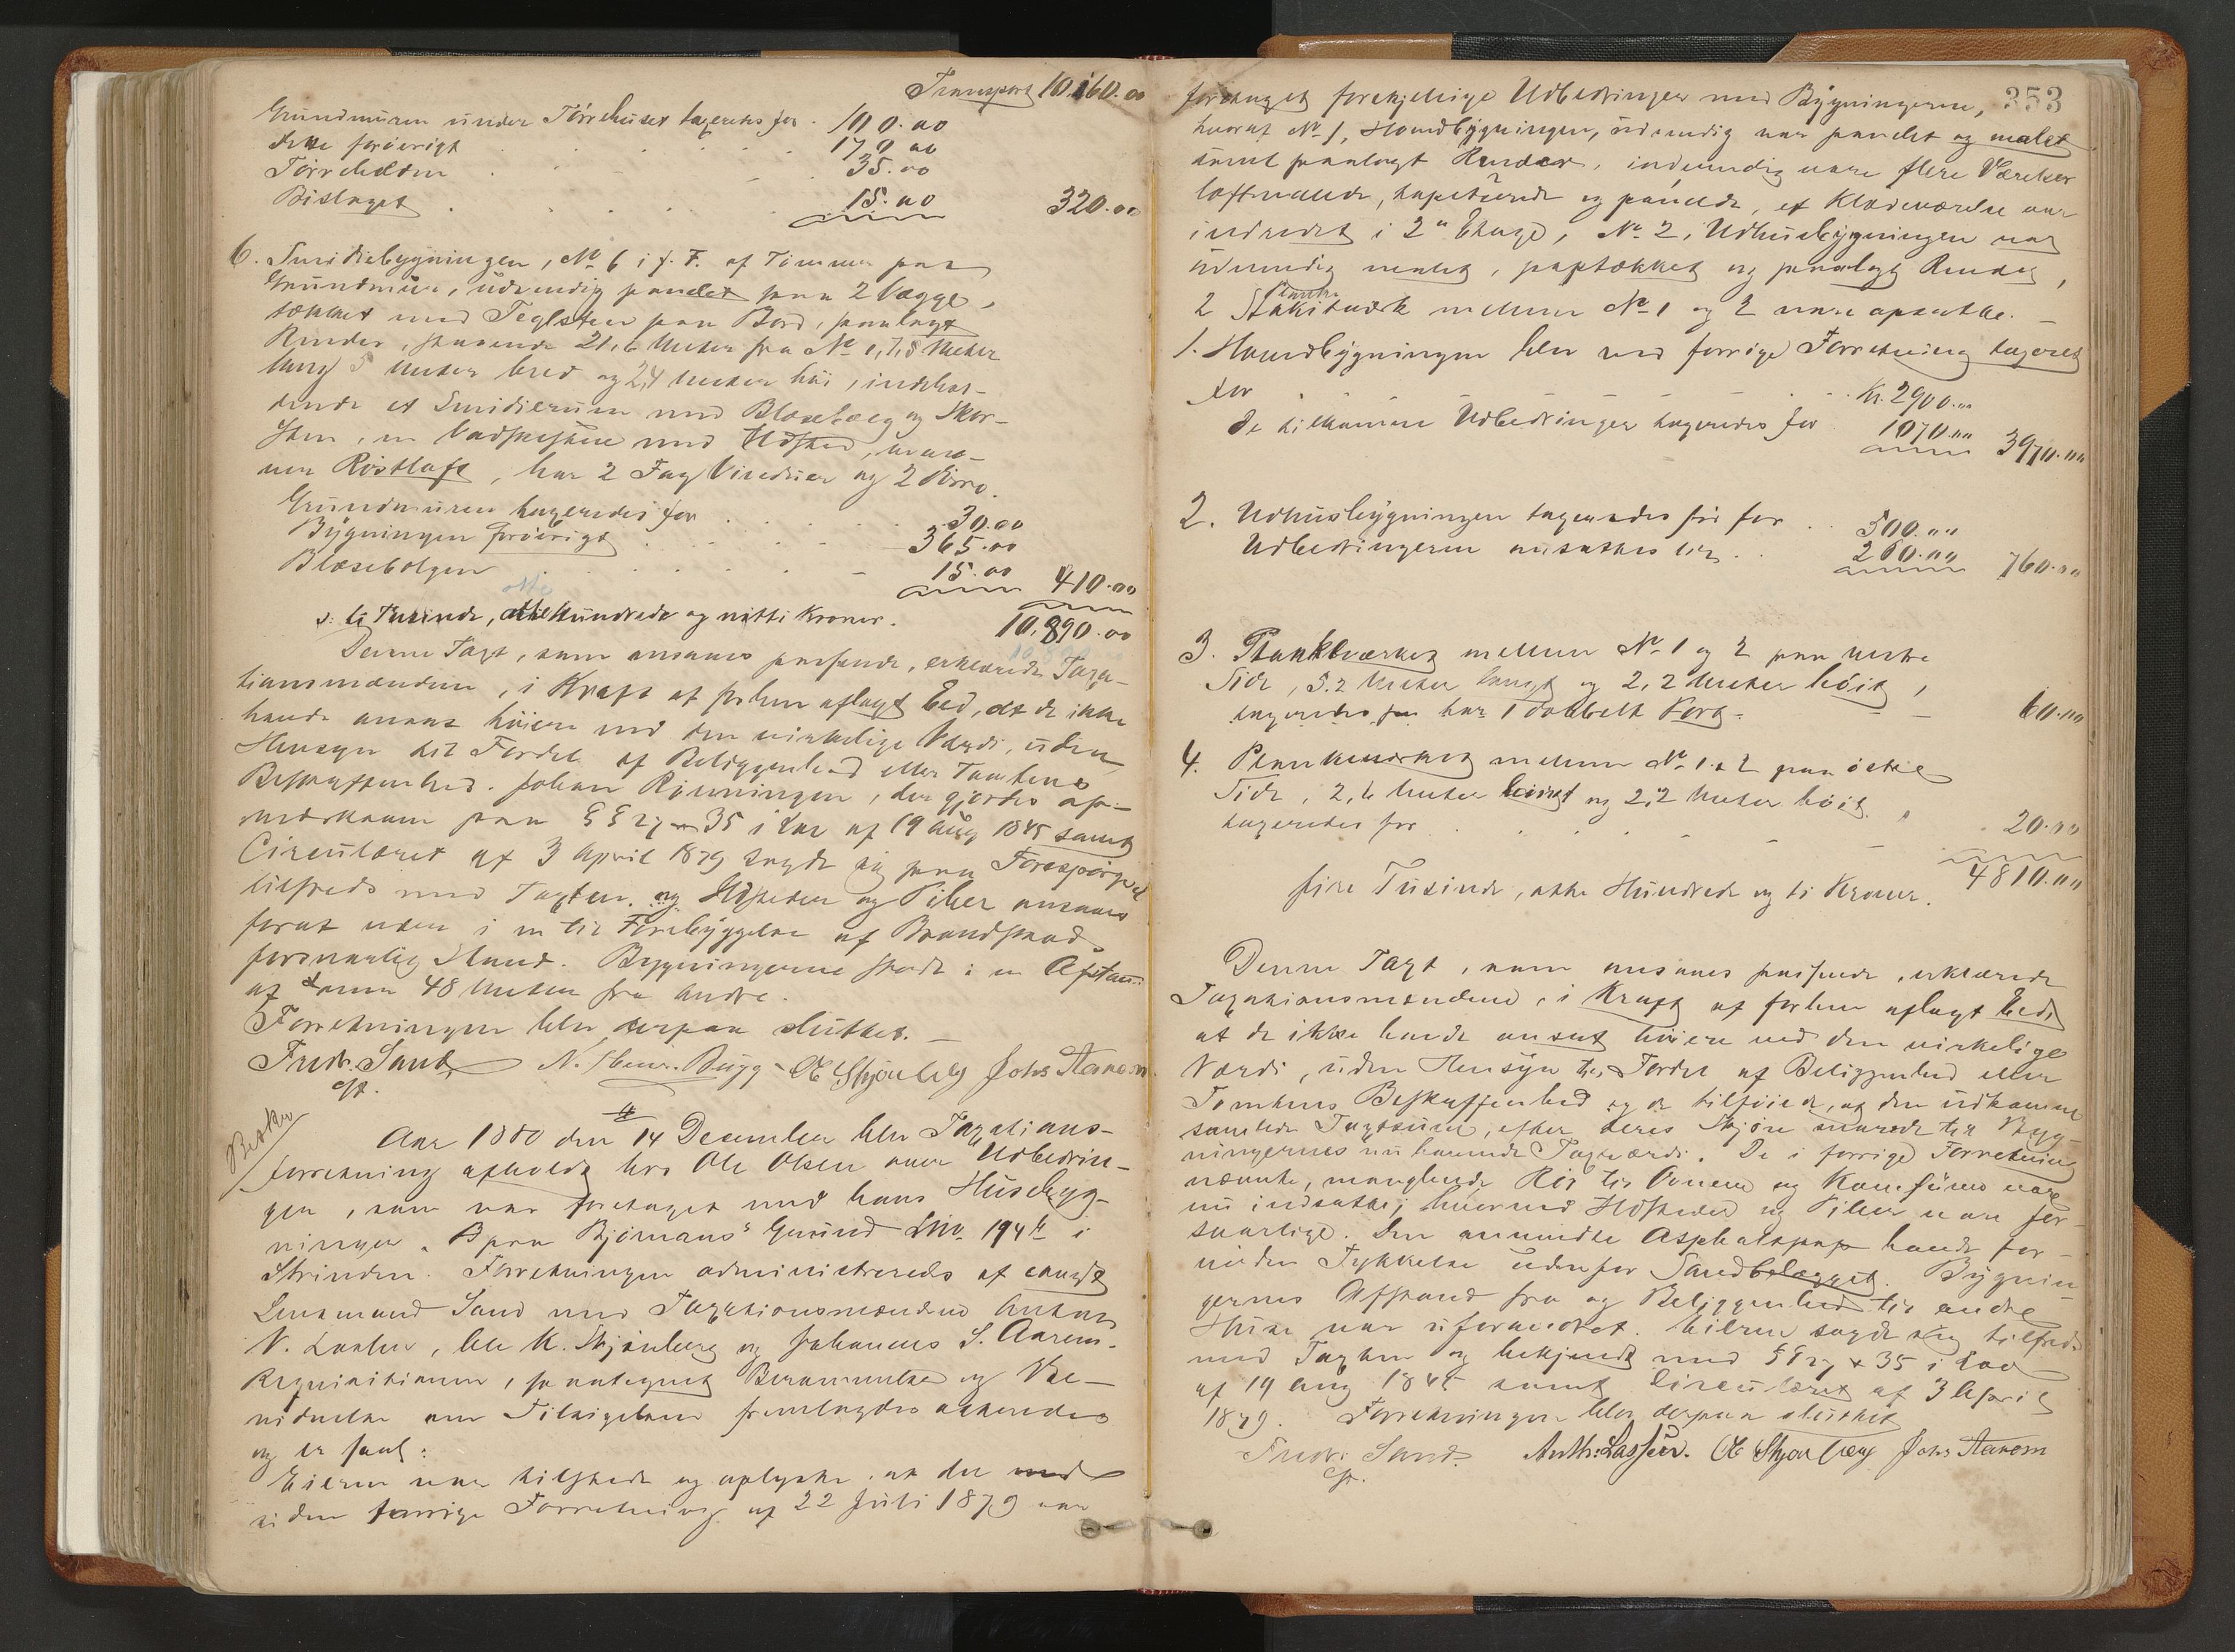 Transport 10.160.00
Grundmuren under Törrehuset taxeredes for . 100.00
dette forövrigt . . . . . 170.00
Törrehelden . . . . . 35.00
Bislaget . . . . . 15.00 320.00
6. Smidiebygningen, No 6 i f. F. af Tömmer paa
Grundmur, udvendig panelet paa 2 Vægge,
tækket med Teglsten paa Bord, paalagt
Render, staaende 21,6 Meter fra No 1, 7,8 Meter
lang 5 Meter bred og 2,4 Meter höi, indehol-
dende et Smidierum med Blæsebælg og Skor-
sten, en Vadskestue med Ildsted, ovenover
Röstloft, har 2 Fag Vinduer og 2 Dörre.
Grundmuren taxeredes for . . . . 30.00
Bygningen forövrigt . . . . 365.00
Blæsebelgen . . . . 15.00 410.00
s: ti Tusinde, otte Hundrede og nitti Kroner. 10,890.00
Denne Taxt, som ansaaes passende, erklærede Taxa-
tionsmændene, i Kraft af forhen aflagt Ed, at de ikke
havde ansat höiere end den virkelige Værdi, uden
Hensyn til Fordel af Beliggenhed eller Tomtens
Beskaffenhed. Johan Rönningen, der gjordes op-
mærksom paa §§ 27 og 35 i Lov af 19 Aug 1845 samt
Circulæret af 3 April 1879 sagde sig paa Forespörgsel
tilfreds med Taxten. og Ildsteder og Piber ansaaes
forat være i en til Forebyggelse af Brandskade
forsvarlig Stand. Bygningerne stode i en Afstand
af 48 Meter fra Andre.
Forretningen blev derpaa sluttet. —
Fredr. Sand N. Bugg OE Skjönberg Johs Aarem
cst.
Aar 1880 den 14 December blev Taxations-
forretning afholdt hos Ole Olsen over Udbedrin-
gen, som var foretaget med hans Husebyg-
ninger „B paa Bjömans" Grund LNo 194 b i
Strinden. Forretningen administreredes af const
Lensmand Sand med Taxationsmændene Anton
N. Lassen, Ole K. Skjönberg og Johannes S. Aarem.
Requisitionen, paategnet Berammelse og Vid-
nidnelse om Tilsigelsen fremlagdes
og er saal:
Eieren var tilstede og oplyste. at der
siden forrige Forretning af 22 Juli 1879 var
353
foretaget forskjellige Udbedringer med Bygningerne,
hvoraf No 1, Hovedbygningen, udvendig var panelet og malet
samt paalagt Render, indvendig vare flere Værelser
loftmalede, tapetserede og panelede, et Klædeværelse var
indredet i 2n Etage, No 2, Udhusbygningen var
udvendig malet, paptækket og paalagt Render,
2 Stakitværk mellem No 1 og 2 vare opsatte. —
1. Hovedbygningen blev ved forrige Forretning taxeret
for . Kr. 2900.00
de tilkomne Udbedringer taxeredes for 1070.00 3970.00
2. Udhusbygningen taxeredes för for . . 500.00
Udbedringerne ansattes til . . 260.00 760.00
3. Plankeværket mellem No 1 og 2 paa vestre
Side, 5.2 Meter langt og 2,2 Meter höit,
taxeredes for har 1 dobbelt Port. — 60.00
4. Plankeværket mellem No 1 & 2 paa östre
Side, 2,6 Meter langt og 2,2 Meter höit,
taxeredes for . . . . . 20.00
fire Tusinde, otte Hundrede og ti Kroner. 4810.00
Denne Taxt, som ansaaes passende, erklærede
Taxationsmændene, i Kraft af forhen aflagt Ed,
at de ikke havde ansat höiere end den virkelige
Værdi, uden Hensyn til Fordel af Beliggenhed eller
Tomtens Beskaffenhed og de tilföiede, at den udkomne
samlede Taxtsum, efter deres Skjön svarede til Byg-
ningernes nu havende Taxtværdi. De i forrige Forretning
nævnte, manglende Rör til Ovnene og Komfuren vare
nu indsatte; hvorved Ildsteder og Piber vare for-
svarlige. Den anvendte Asphaltpap havde for-
nöden Tykkelse udenfor Sandbelægget. Bygnin-
gernes Afstand fra og Beliggenhed til andre
Huse var uforandret. Eieren sagde sig tilfreds
med Taxten og bekjendt med §§ 27 & 35 i Lov
af 19 Aug 1845 samt Circulæret af 3 April
1879. Forretningen blev derpaa sluttet
Fredr. Sand Anth: Lassen. OE Skjönberg Johs Aarem
cst.